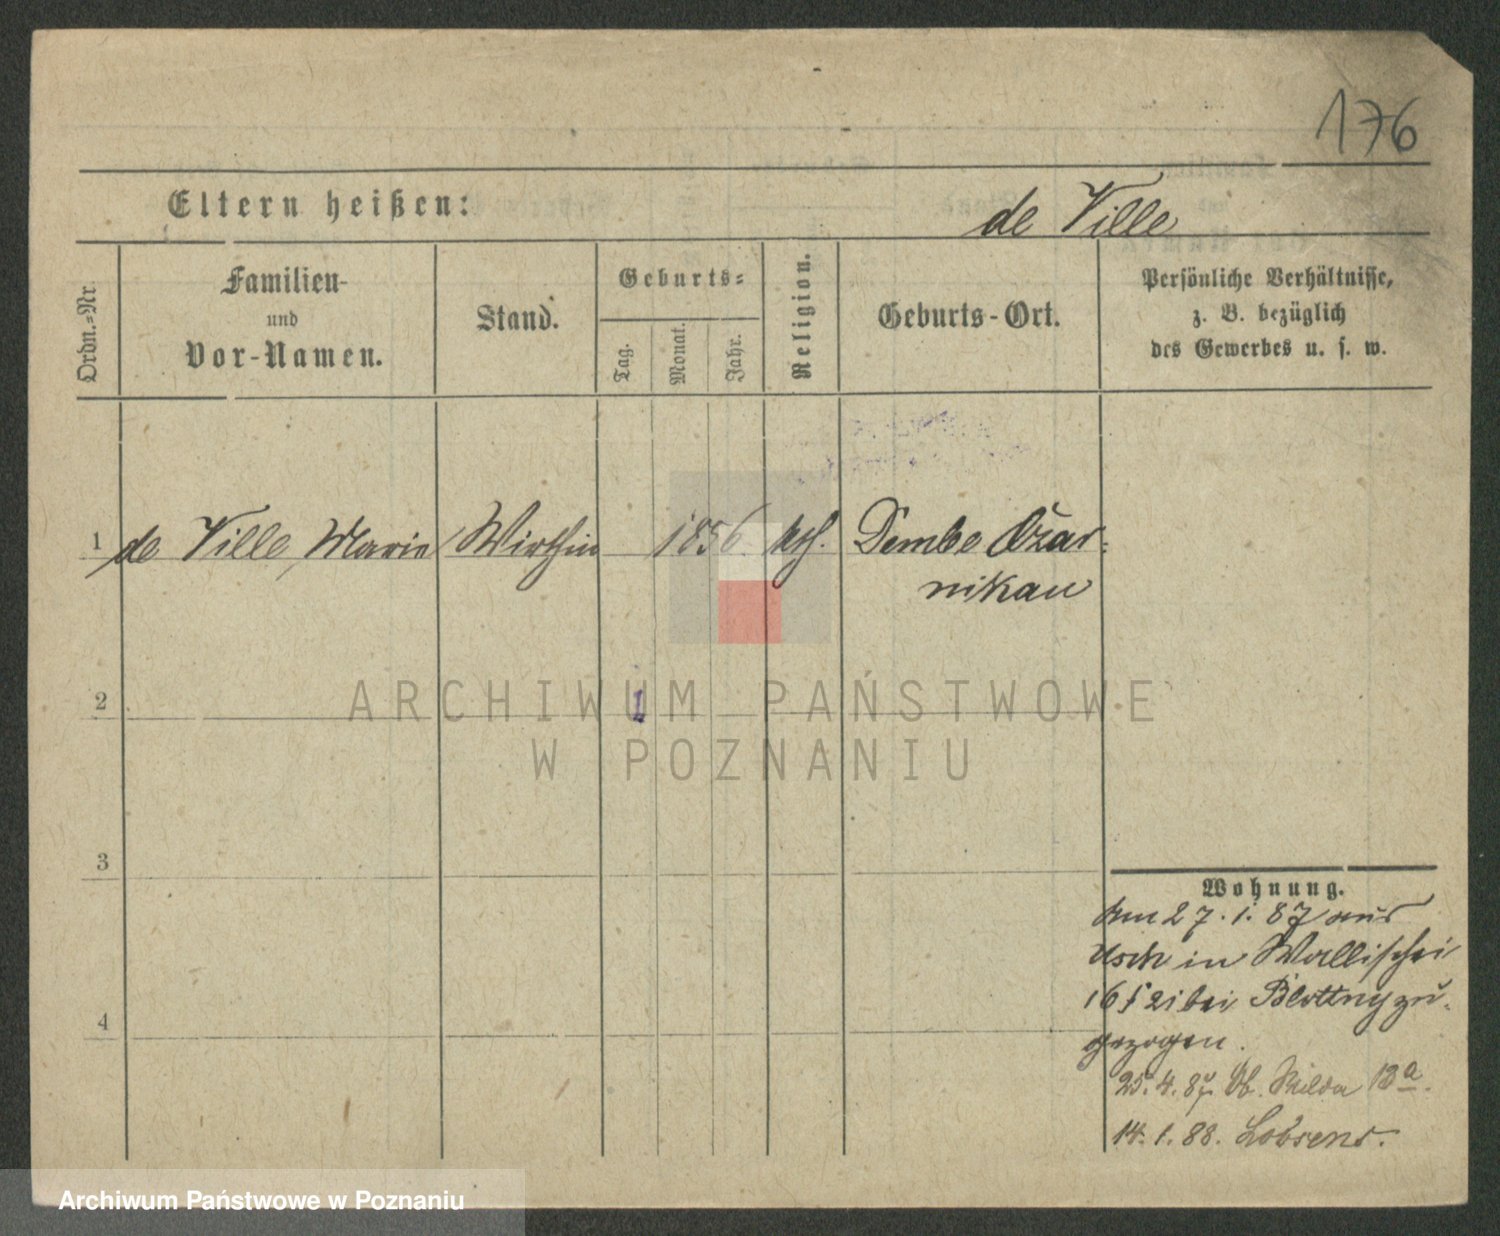 176
Eltern heißen:
de Ville
Ordn.-Nr.
Familien-
und
Vor-Namen.
Stand.
Geburts-
Tag.
Monat.
Jahr.
Religion.
Geburts-Ort.
Persönliche Verhältnisse,
z. B. bezüglich
des Gewerbes u. s. w.
1 de Ville Marie Wirthin 1856. kth. Dembe Czar-
nikau
ARCHIWUM PAŃSTWOWE
W POZNANIU
2 1
3
4
Wohnung.
Am 27.1.87 aus
Usch in Wallischei
16 bei Blottny zu-
gezogen.
25.4.87. Ob. Wilda 13a.
14.1.88. Lobsens.
Archiwum Państwowe w Poznaniu